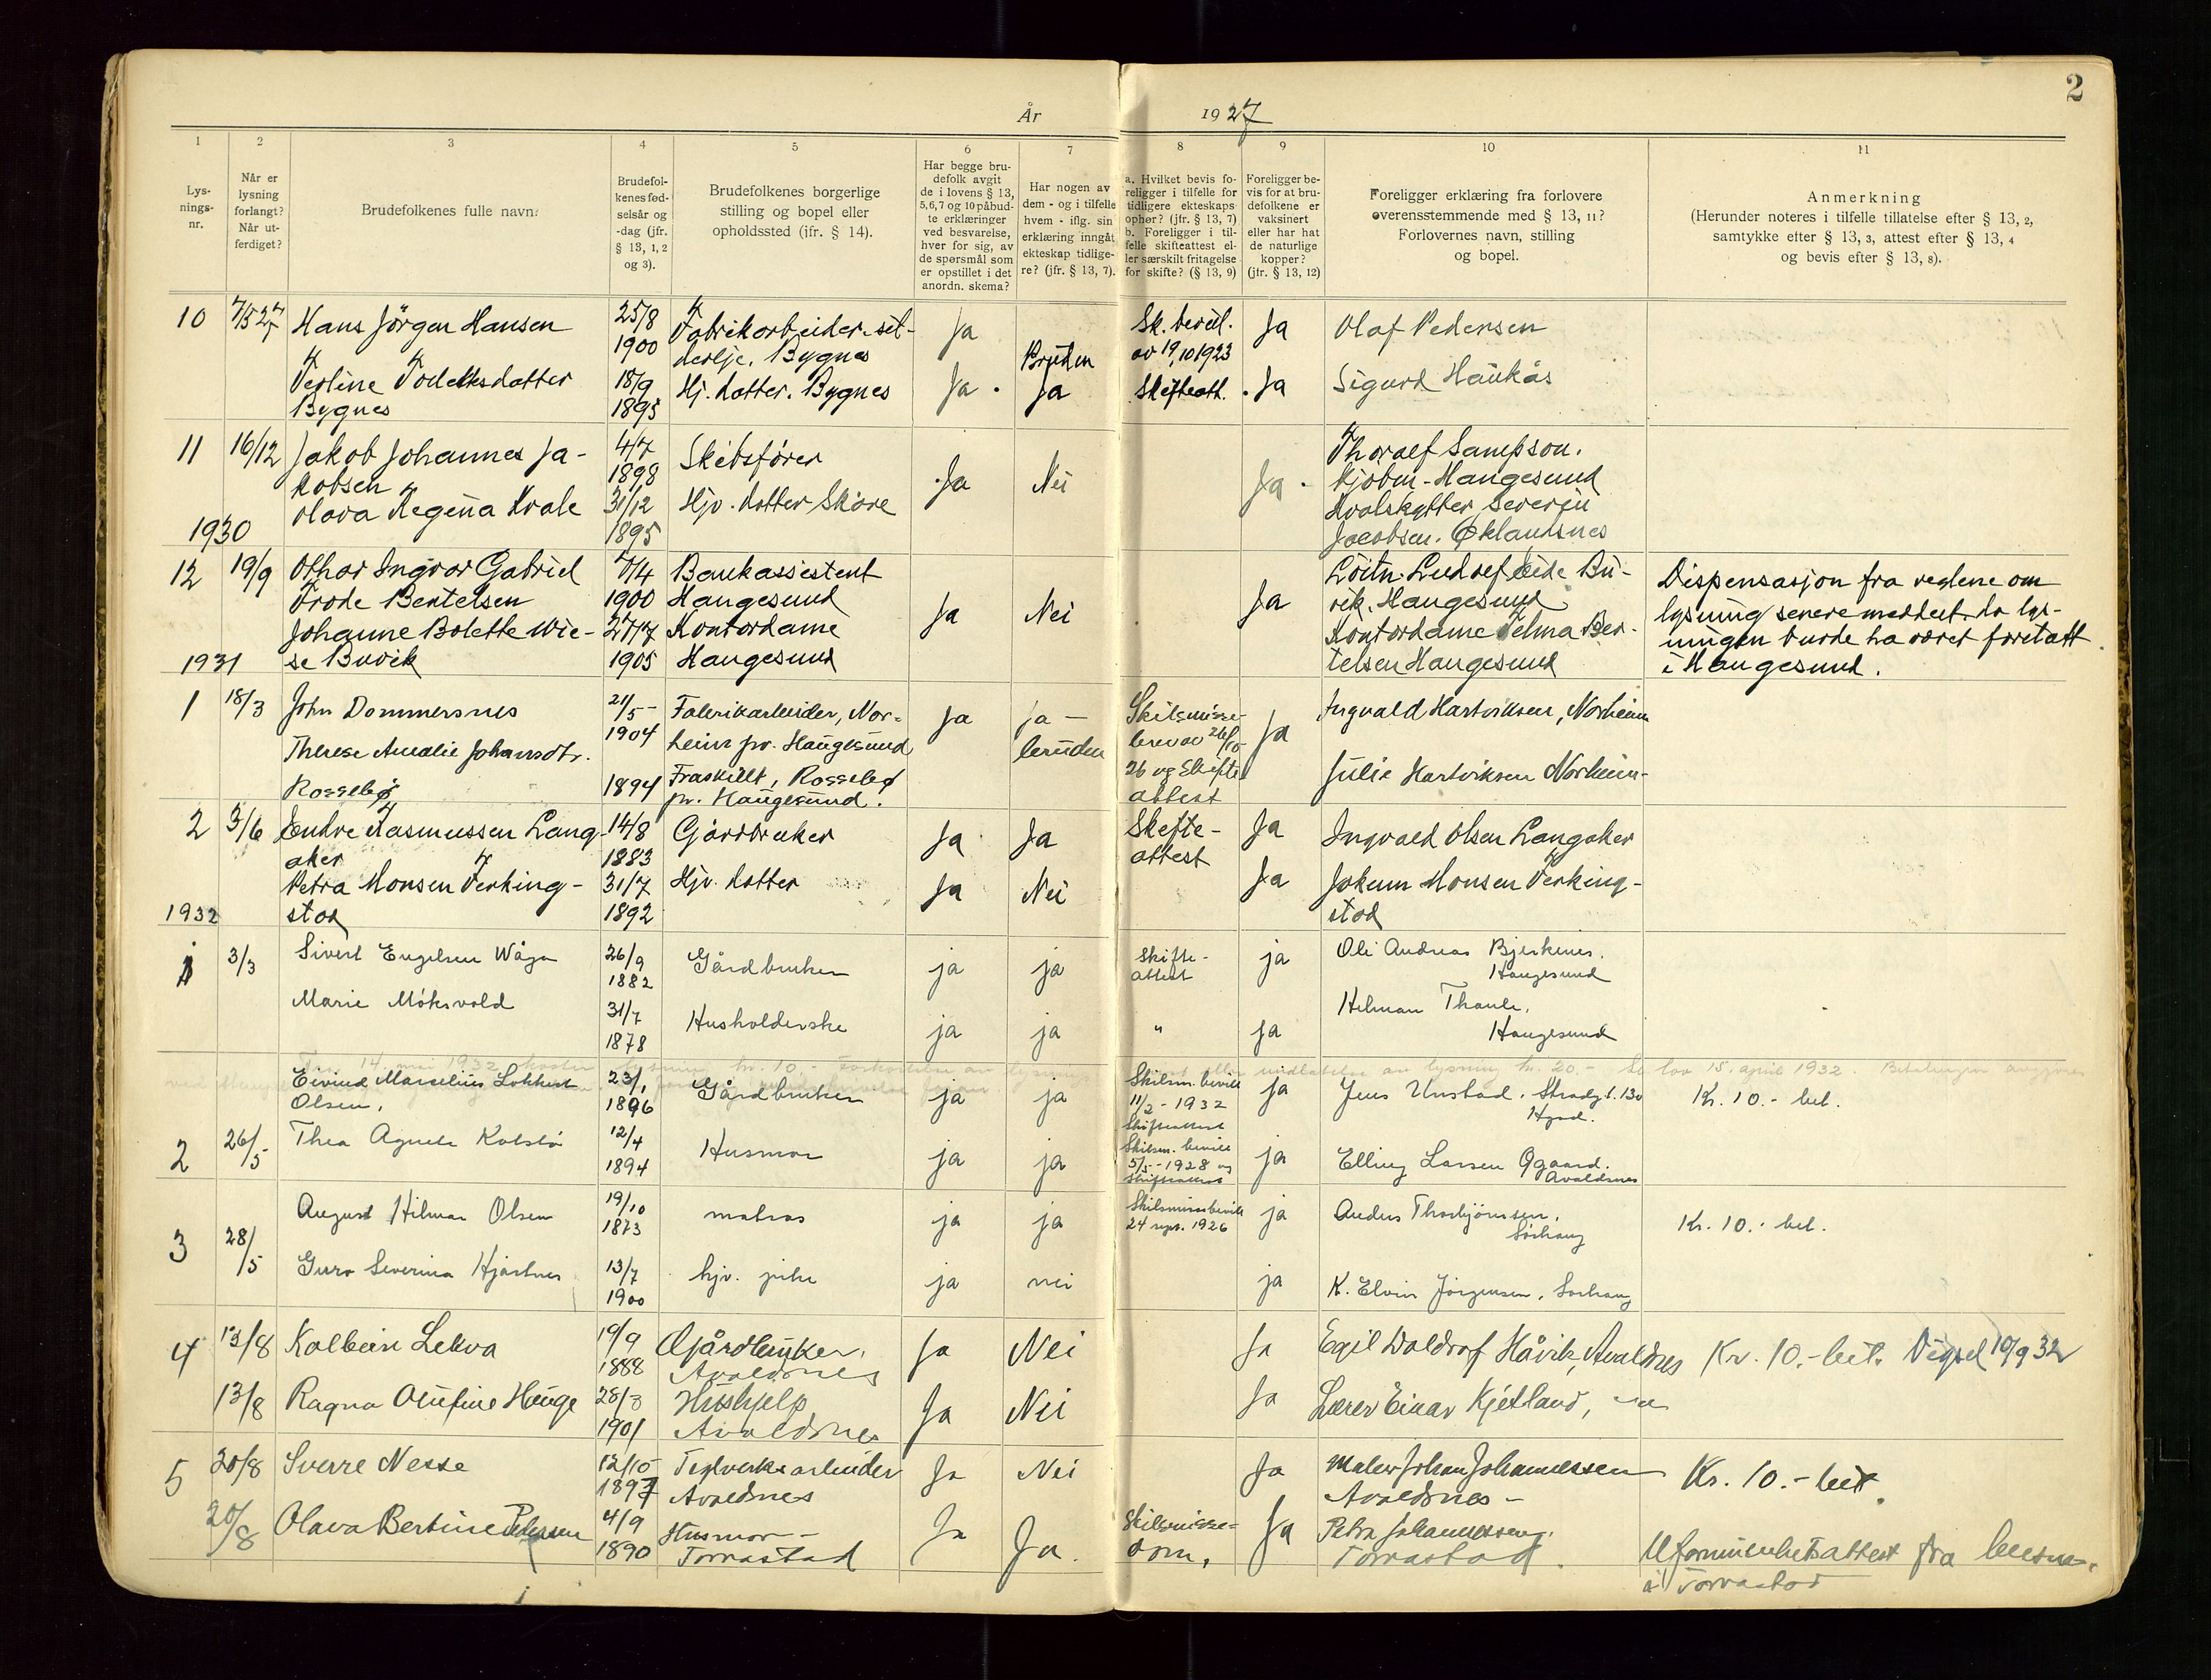 2
År 1927
1 2 3 4 5 6 7 8 9 10 11
Lys-
nings-
nr.
Når er
lysning
forlangt?
Når ut-
ferdiget?
Brudefolkenes fulle navn.
Brudefol-
kenes fød-
selsår og
-dag (jfr.
§ 13, 1, 2
og 3).
Brudefolkenes borgerlige
stilling og bopel eller
opholdssted (ifr. § 14).
Har begge bru-
defolk avgit
de i lovens § 13,
5,6,7 og 10 påbud-
te erklæringer
ved besvarelse,
hver for sig, av
de spørsmål som
er opstillet i det
anordn. skema?
Har nogen av
dem - og i tilfelle
hvem - iflg. sin
erklæring inngåt
ekteskap tidlige-
re? (jfr. § 13, 7).
a. Hvilket bevis fo-
religger i tilfelle for
tidligere ekteskaps
ophør? (jfr. § 13, 7)
b. Foreligger i til-
felle skifteattest el-
ler særskilt fritagelse
for skifte? (§ 13, 9)
Foreligger be-
vis for at bru-
defolkene er
vaksinert
eller har hat
de naturlige
kopper?
(jfr. § 13, 12)
Foreligger erklæring fra forlovere
overensstemmende med § 13, 11?
Forlovernes navn, stilling
og bopel.
Anmerkning
(Herunder noteres i tilfelle tillatelse efter § 13, 2,
samtykke efter § 13, 3, attest efter § 13, 4
og bevis efter § 13, 8).
10 7/5 27 Hans Jörgen Hansen 25/8 1900 Ja Sk. bevil. Ja Olaf Pedersen
Bygnes Bruden av 19/10 1923
18/9 1895 Hj. datter. Bygnes Ja Ja Skifteatt. Ja Sigurd Haukås
Bygnes
11 16/12 Jakob Johannes Ja- 4/7 1898 Skibsfører Ja Nei Ja Thoralf Sampson.
kobsen Kjøbm - Haugesund
Olava Regina Kvale 31/12 1895 Hjv. datter Skåre Hvalskytter Severin
1930 Jacobsen. Øklandsnes
12 19/9 Othar Ingvar Gabriel 7/4 1900 Bankassistent Ja Nei Ja
Frode Bertelsen Haugesund
Johanne Bolette Wie- 27/7 1905 Kontordame
se Buvik Haugesund
Haugesund
Kontordame Telma Ber-
telsen Haugesund
Dispensasjon fra reglene om
lysning senere meddelt da lys-
ningen burde ha været foretatt
i Haugesund.
1931
1 18/3 John Dommersnes 21/5 - 1904 Fabrikarbeider, Nor- ja ja - Skilsmisse- Ja Ingvald Hartviksen, Norheim
heim pr. Haugesund bruden
Therese Amalie Johansdtr. 1894 Fraskillt, Rossebø 26 og Skifte Julie Hartviksen Norheim-
Rossebø pr. Haugesund. attest
2 3/6 Endre Rasmussen Lang- 14/8 1883 Gårdbruker Ja Ja Skifte- Ja Ingvald Olsen Langaker
aker attest
Petra Monsen Ferking- 31/7 1892 Hjv. datter Ja Nei Ja Jokum Monsen Ferking-
stad stad
1932
1 3/3 Sivert Engelsen Våga 26/9 1882 Gårdbruker ja ja Skifte- ja Ole Andreas Bjerknes.
attest Haugesund
Marie Möksvold 31/7 1878 Husholderske ja ja " ja Hilman Thaule,
Haugesund
Eivind Marselius 23/1 1896 Gårdbruker ja ja Skilsm. bevill ja Jens Unstad. Kr. 10.- bet.
Olsen, 11/2 - 1932
Skifteattest
2 26/5 Thea Agnete Kolstö 12/4 1894 Husmor ja ja Skilsm. bevill ja Elling Larsen Ogaard.
5/5 - 1928 og Avaldsnes
skifteattest
3 28/5 August Hilmar Olsen 19/10 1873 matros ja ja Skilsmissebevill ja Anders Thorbjörnsen, Kr. 10.- bet.
24 sept. 1926 Sörhaug
Guro Severina Hjartnes 13/7 1900 hjv. pike ja nei ja K. Elvin Jörgensen, Sörhaug
4 13/8 Kolbein Lekva 19/9 1888 Gårdbruker, Ja Nei Ja Egil Waldrof Håvik, Avaldsnes Kr. 10.- bet. Vigsel 10/9 32
Avaldsnes
13/8 Ragna Olufine Hauge 28/3 1901 Hushjelp Ja Nei Ja Lærer Einar Kjetland,
Avaldsnes
5 20/8 Sverre Nesse 12/10 1897 Teglverksarbeider Ja Nei Ja Maler Johan Johannessen Kr. 10.- bet.
Avaldsnes Avaldsnes -
20/8 Olava Bertine Pedersen 4/9 1890 Husmor - Ja Ja. Skilsmisse- Ja Petra Johannessen,
Torvastad dom, Torvastad. Uformuenhetsattest fra lensm.
i Torvastad